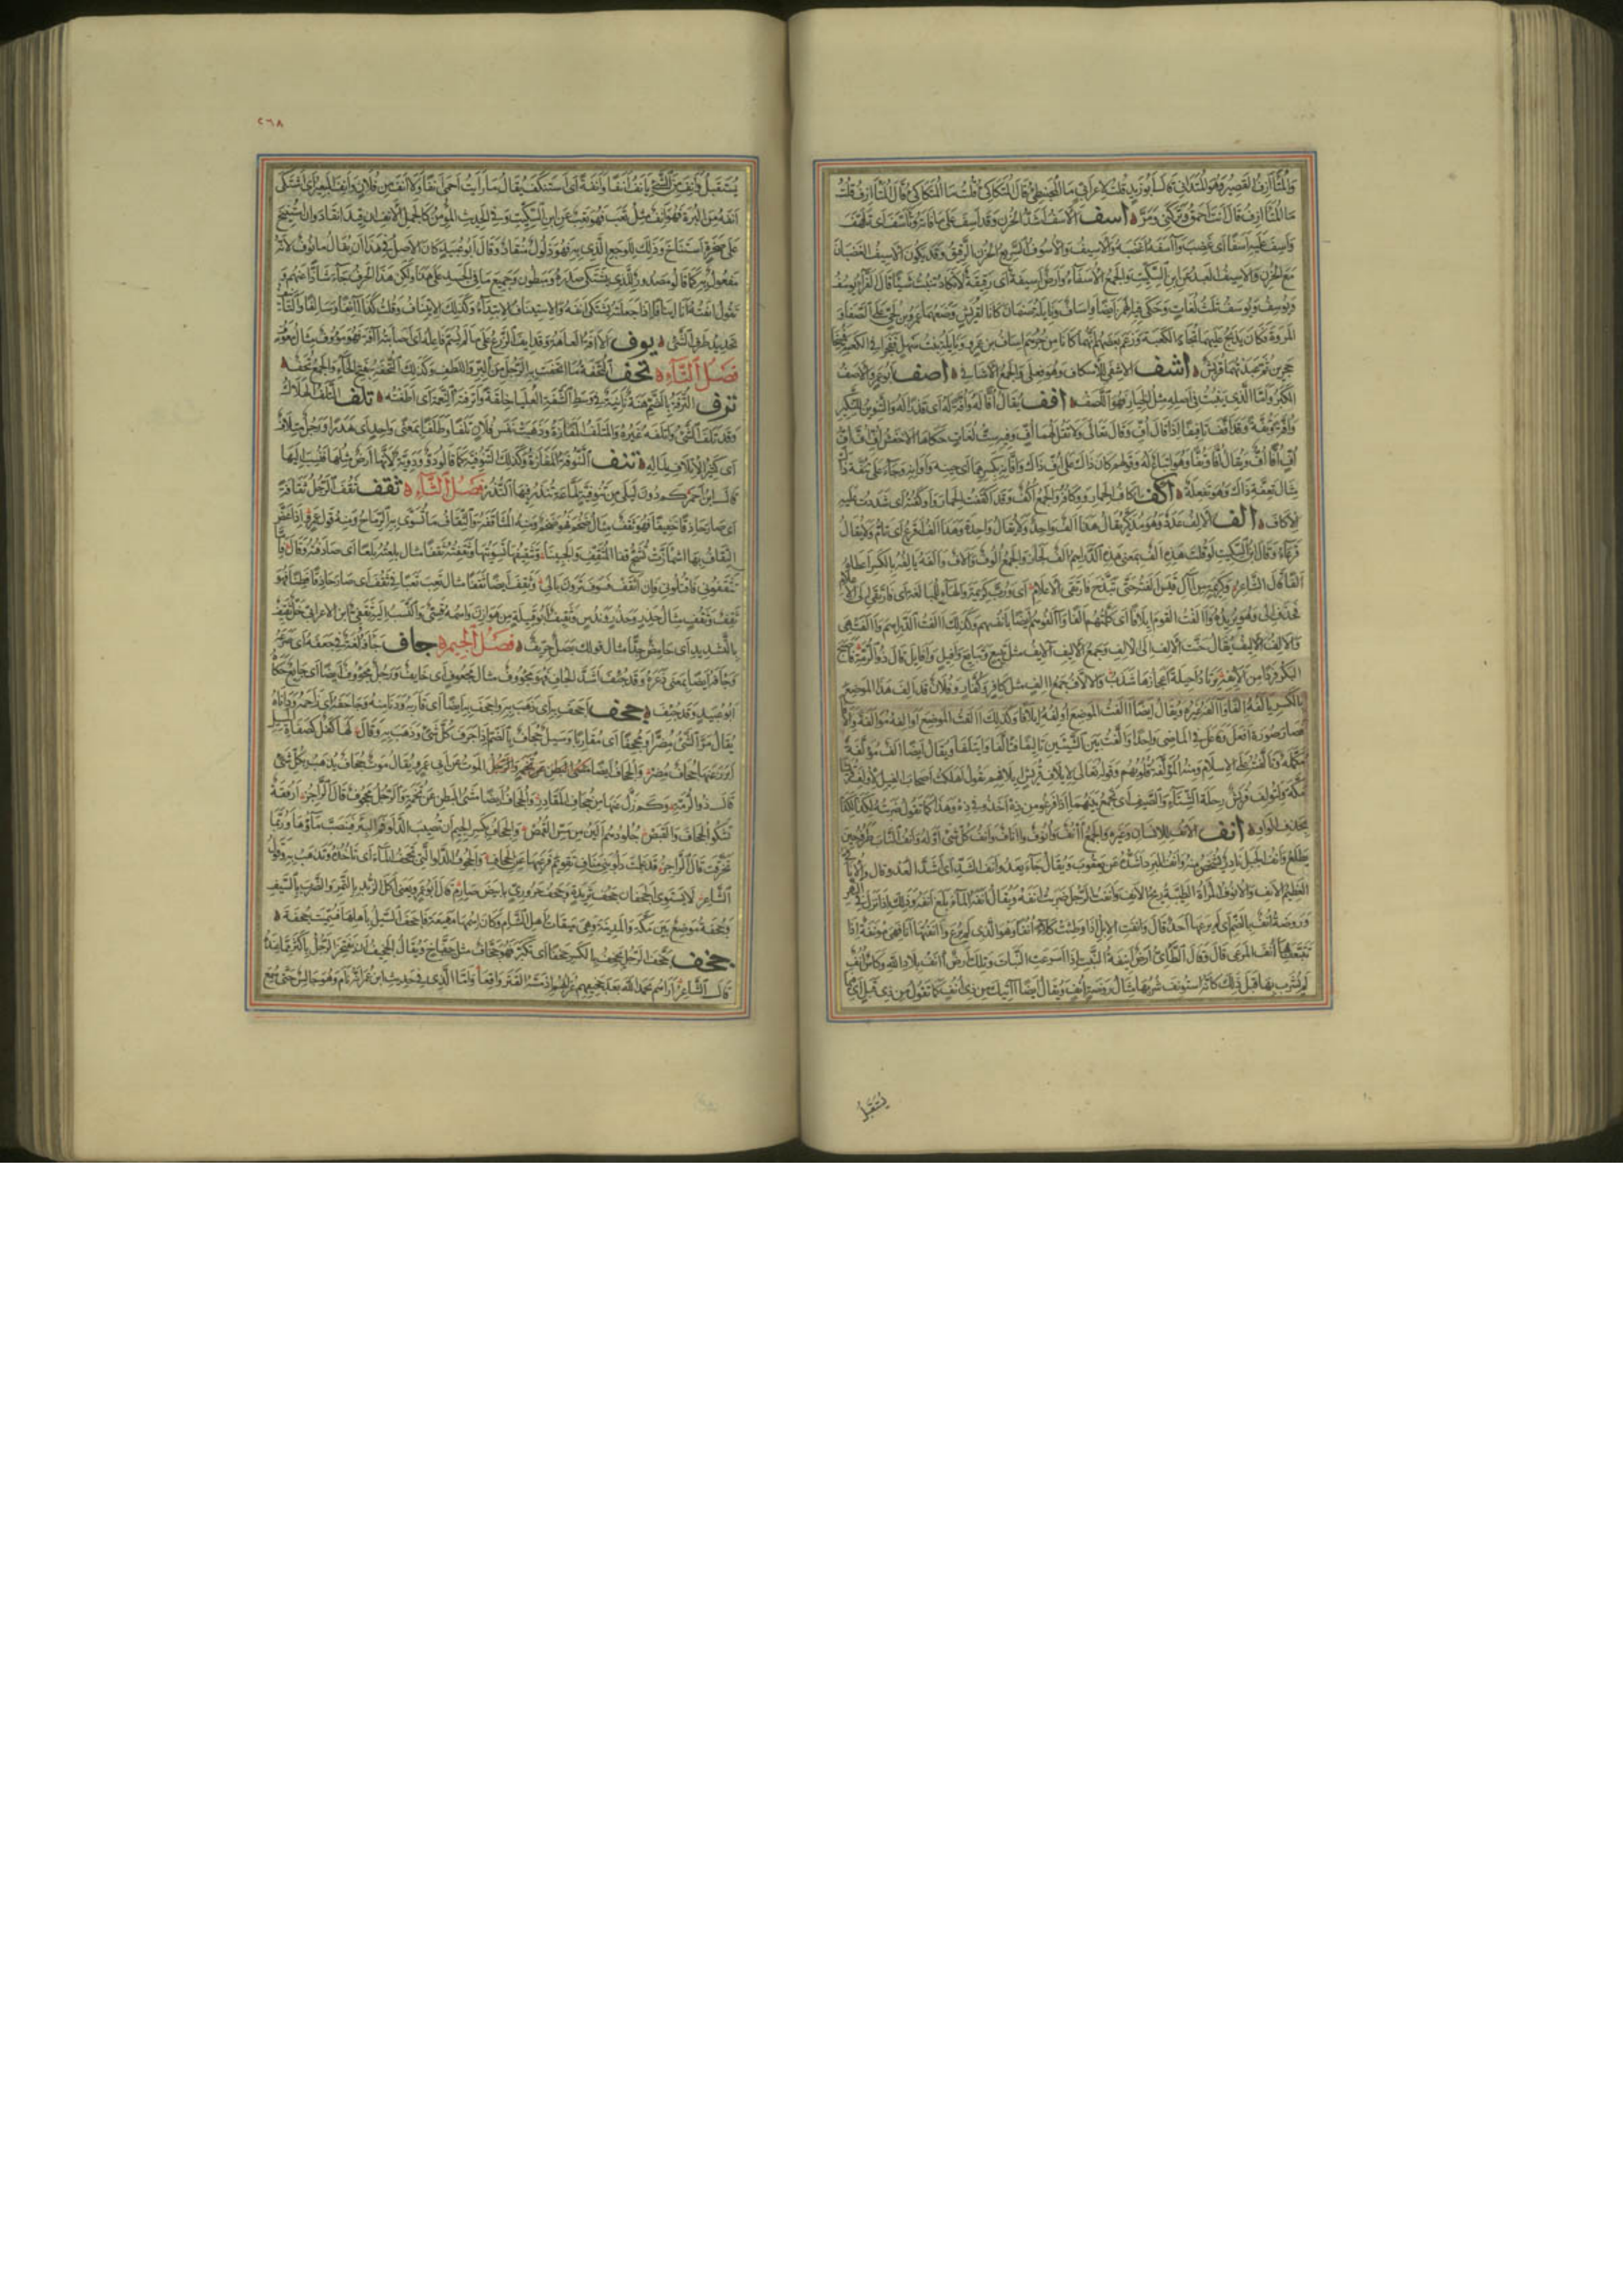 والمتآزف القصير وهو المتدانى قال ابو زيد قلت لاعرابى ما المحبنطئ قال المتكاكئ قلت ما المتكاكئ قال المتآزف قلت
ما المتآزف قال انت احمق وتركنى ومر اسف الاسف اشد الحزن وقد اسف على ما فاته وتاسف اى تلهف
واسف عليه اسفا اى غضب وآسفه اغضبه والاسيف والاسوف السريع الحزن الرقيق وقد يكون الاسيف الغضبان
مع الحزن والاسيف العبد عن ابن السكيت والجمع الاسفاء وارض اسيفة اى رقيقة لا تكاد تنبت شيئا قال الفراء يوسف
ويوسف ويوسف ثلث لغات وحكى فيه الهمز ايضا واساف ونايلة صنمان كانا لقريش وضعهما عمرو بن لحى على الصفا و
المروة وكان يذبح عليهما تجاه الكعبة وزعم بعضهم انهما كانا من جرهم اساف بن عمرو ونايلة بنت سهل ففجرا فى الكعبة فمسخا
حجرين ثم عبدتهما قريش اشف الاشفى للاسكاف وهو فعلى والجمع الاشافى اصف ابو عمرو الاصف
الكبر واما الذى ينبت فى اصله مثل الخيار فهو اللصف افف يقال افا له وافة له اى قذرا له والتنوين للتنكير
وافة وتفة وقد افف تافيفا اذا قال اف وقال تعالى ولا تقل لهما اف وفيه ست لغات حكاها الاخفش اف اف اف
اف افا اف ويقال افا وتفا وهو اتباع له وقولهم كان ذاك على اف ذاك وافانه بكسرهما اى حينه واوانه وجاء على تئفة ذاك
مثال تعفة ذاك وهو تفعلة اكف اكاف الحمار ووكافه والجمع اكف وقد آكفت الحمار واوكفته اى شددت عليه
الاكاف الف الالف عدد وهو مذكر يقال هذا الف واحد ولا يقال واحدة وهذا الف اقرع اى تام ولا يقال
قرعاء وقال ابن السكيت لو قلت هذه الف بمعنى هذه الدراهم الف لجاز والجمع الوف وآلاف والفه يالفه بالكسر اى اعطاه
الفا قال الشاعر وكريمة من آل قيس الفته حتى تبذخ فارتقى الاعلام اى ورب كريمة والهاء للمبالغة اى فارتقى الى الاعلام
فحذف الى وهو يريده وآلفت القوم ايلافا اى كملتهم الفا وآلفوا هم ايضا بانفسهم وكذلك آلفت الدراهم وآلفت هى
والالف الاليف يقال حنت الالف الى الالف وجمع الاليف آلايف مثل تبيع وتبايع وافيل وافايل قال ذو الرمة فاصبح
البكر فردا من الايفه يرتاد احلية اعجازها شذب والالاف جمع الف مثل كافر وكفار وفلان قد الف هذا الموضع
بالكسر يالفه الفا وآلفه غيره ويقال ايضا آلفت الموضع اولفه ايلافا وكذلك آلفت الموضع اوالفه موالفة والافا
فصار صورة افعل وفاعل فى الماضى واحدا والفت بين الشيئين تاليفا فتالفا وايتلفا ويقال ايضا الف مؤلفة
مكملة وتالفته على الاسلام ومنه المؤلفة قلوبهم وقوله تعالى لايلاف قريش ايلافهم يقول اهلكت اصحاب الفيل لاولف قريشا
مكة ولتولف قريش رحلة الشتاء والصيف اى تجمع بينهما اذا فرغوا من ذه اخذوا فى ذه وهذا كما تقول ضربته لكذا لكذا
بحذف الواو انف الانف للانسان وغيره والجمع آنف وانوف وآناف وانف كل شئ اوله وانف الناب طرفه حين
يطلع وانف الجبل نادر يشخص منه وانف البرد اشده عن يعقوب ويقال جاء يعدو انف الشد اى اشد العدو
العظيم الانف والانوف المراة الطيبة ريح الانف وانفت الرجل ضربت انفه ويقال انفه الماء بلغ انفه وذلك اذا نزل النهر
وروضة انف بالضم اى لم يرعها احد قال وانفت الابل اذا وطئت كلا انفا وهو الذى لم يرع وآنفتها انا فهى مونفة اذا
تتبعت بها انف المرعى قال وقال الطائى ارض انيفة النبت اذا اسرعت النبات وتلك ارض آنف بلاد الله وكاس انف
لم يشرب بها قبل ذلك كانه استونف شربها مثال روضة انف ويقال ايضا آتيك من ذى انف كما تقول من ذى قبل اى فيما
يستقبل
٢٦٨
يستقبل وانف من الشئ يانف انفا وانفة اى استنكف يقال ما رايت احمى انفا ولا آنف من فلان وانف البعير اى اشتكى
انفه من البرة فهو انف مثل تعب فهو تعب عن ابن السكيت وفى الحديث المؤمن كالجمل الانف ان قيد انقاد وان استنيخ
على صخرة استناخ وذلك للوجع الذى به فهو ذلول منقاد وقال ابو عبيد كان الاصل فى هذا ان يقال مانوف لانه
مفعول به كما قالوا مصدور للذى يشتكى صدره ومبطون وجميع ما فى الجسد على هذا ولكن هذا الحرف جاء شاذا عنهم و
تقول آنفته انا ايناقا اذا جعلته يشتكى انفه والاستيناف الابتداء وكذلك الايتناف وقلت كذا آنفا وسالفا والتانيف
تحديد طرف الشئ يوف الآفة العاهة وقد ايف الزرع على ما لم يسم فاعله اى اصابته آفة فهو مؤوف مثال معوف
فصل التاء تحف التحفة ما اتحفت به الرجل من البر واللطف وكذلك التحفة بفتح الحاء والجمع تحف
ترف الترفة بالضم هنة ناتية فى وسط الشفة العليا خلقة واترفته النعمة اى اطغته تلف التلف الهلاك
وقد تلف الشئ واتلفه غيره والمتلف المفازة وذهبت نفس فلان تلفا وطلفا بمعنى واحد اى هدرا ورجل متلاف
اى كثير الاتلاف لماله تنف التنوفة المفازة وكذلك التنوفية كما قالوا دو ودوية لانها ارض مثلها فنسب اليها
قال ابن احمر كم دون ليلى من تنوفية لماعة تنذر فيها النذر فصل الثاء ثقف ثقف الرجل ثقافة
اى صار حاذقا خفيفا فهو ثقف مثال ضخم فهو ضخم ومنه المثاقفة والثقاف ما تسوى به الرماح ومنه قول عمرو اذا عض
الثقاف بها اشمازت تشج قفا المثقف والجبينا وتثقيفها تسويتها وثقفته ثقفا مثال بلعته بلعا اى صادفته وقال فاما
تثقفونى فاقتلونى وان اثقف فسوف ترون بالى وثقف ايضا ثقفا مثال تعب تعبا لغة فى ثقف اى صار حاذقا فطنا فهو
ثقف وثقف مثال حذر وحذر وندس وندس وثقيف ابو قبيلة من هوازن واسمه قسى والنسب اليه ثقفى ابن الاعرابى خل ثقيف
بالتشديد اى حامض جدا مثال قولك بصل حريف فصل الجيم جاف جافه لغة فى جعفه اى صرعه
وجافه ايضا بمعنى ذعره وقد جئف اشد الجاف فهو مجؤوف مثال مجعوف اى خايف ورجل مجؤوف ايضا اى جايع حكاه
ابو عبيد وقد جئف جحف اجحف به اى ذهب به واجحف به ايضا اى قاربه ودنا منه وجاحفه اى زاحمه وداناه
يقال مر الشئ مضرا ومجحفا اى مقاربا وسيل جحاف بالضم اذا جرف كل شئ وذهب به وقال لها كفل كصفاة المسيل
ابرز عنها جحاف مضر والجحاف ايضا الموت عن ابى عمرو يقال موت جحاف يذهب بكل شئ
قال ذو الرمة وكم زل عنها من جحاف المقادر والجحاف ايضا مشى البطن عن تخمة والرجل مجحوف قال الراجز ارفقة
تشكو الجحاف والقبص جلودهم الين من مس القمص والجحاف بكسر الجيم ان تصيب الدلو فم البئر فتنصب ماؤها وربما
تخرقت قال الراجز قد علمت دلو بنى مناف تقويم فرغيها عن الجحاف والجحوف الدلو التى تجحف الماء اى تاخذه وتذهب به وقول
الشاعر لا يستوى الجحفان جحف ثريدة وجحف حرورى بابيض صارم قال ابو عمرو يعنى اكل الزبد بالتمر والضرب بالسيف
وجحفة موضع بين مكة والمدينة وهى ميقات اهل الشام وكان اسمها مهيعة فاجحف السيل باهلها فسميت جحفة
جخف جخف الرجل يجخف بالكسر جخفا اى تكبر فهو جخاف مثل جفاخ ويقال الجخيف ان يفتخر الرجل باكثر مما عنده
قال الشاعر اراهم بحمد الله بعد جخيفهم غرابهم اذ مسه الفتر واقعا واما الذى فى حديث ابن عمر انه نام وهو جالس حتى سمع